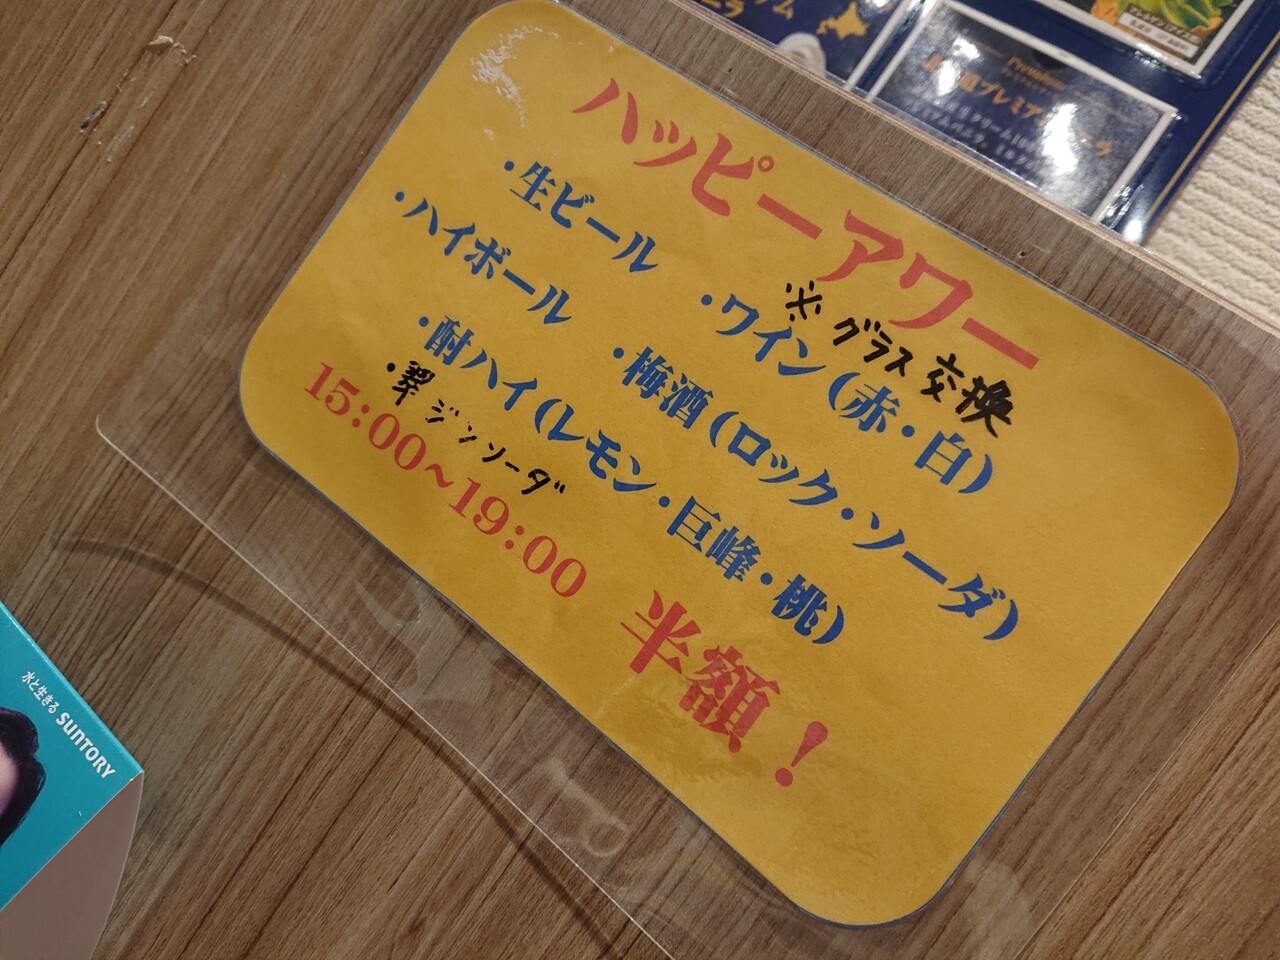 ハッピーアワー
※グラス交換
・生ビール ・ワイン(赤・白)
・ハイボール ・梅酒(ロック・ソーダ)
・酎ハイ(レモン・巨峰・桃)
・翠ジンソーダ
15:00~19:00 半額!
水と生きる SUNTORY